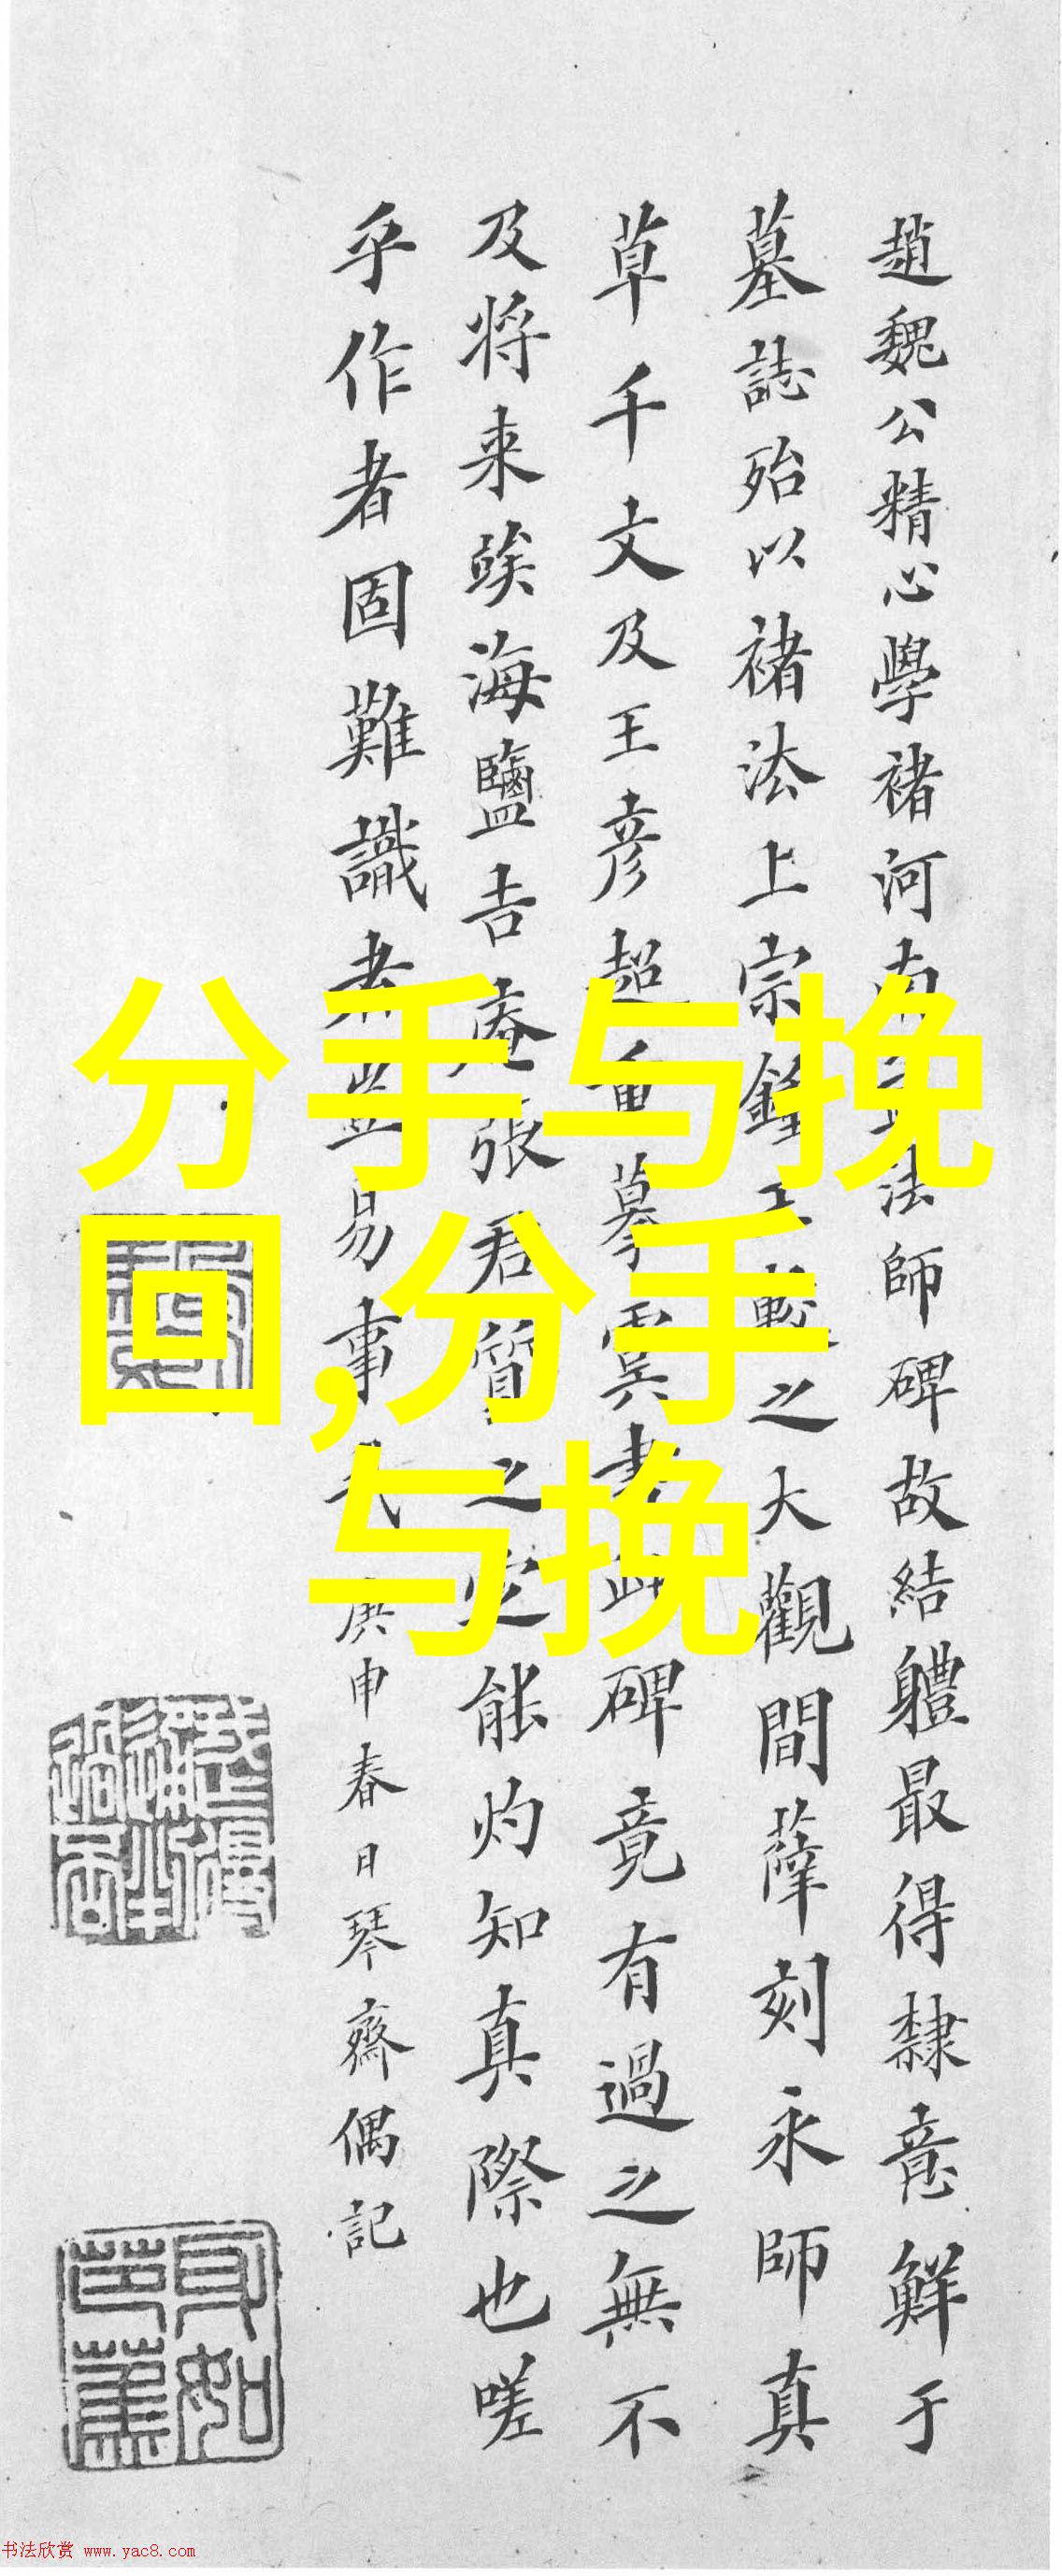 趙魏公精心學褚河南法師碑故結軆最得隸意鮮于
墓誌殆以褚法上宗鍾之大觀間薛刻永師真
草千文及王彦超重摹虞書此碑竟有過之無不
及将来竢海鹽吉庵張君質之定能灼知真際也嗟
乎作者固難識者豈易事哉庚申春日琴齋偶記
分手与挽
回,分手
与挽
书法欣赏 www.yac8.com